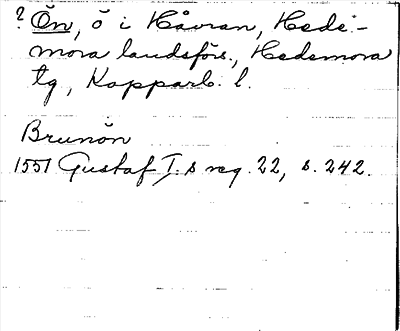 ? Ön, ö i Håvran, Hede-
mora landsförs., Hedemora
tg, Kopparb. l.
Brunön
1551 Gustaf I.s reg. 22, s. 242.